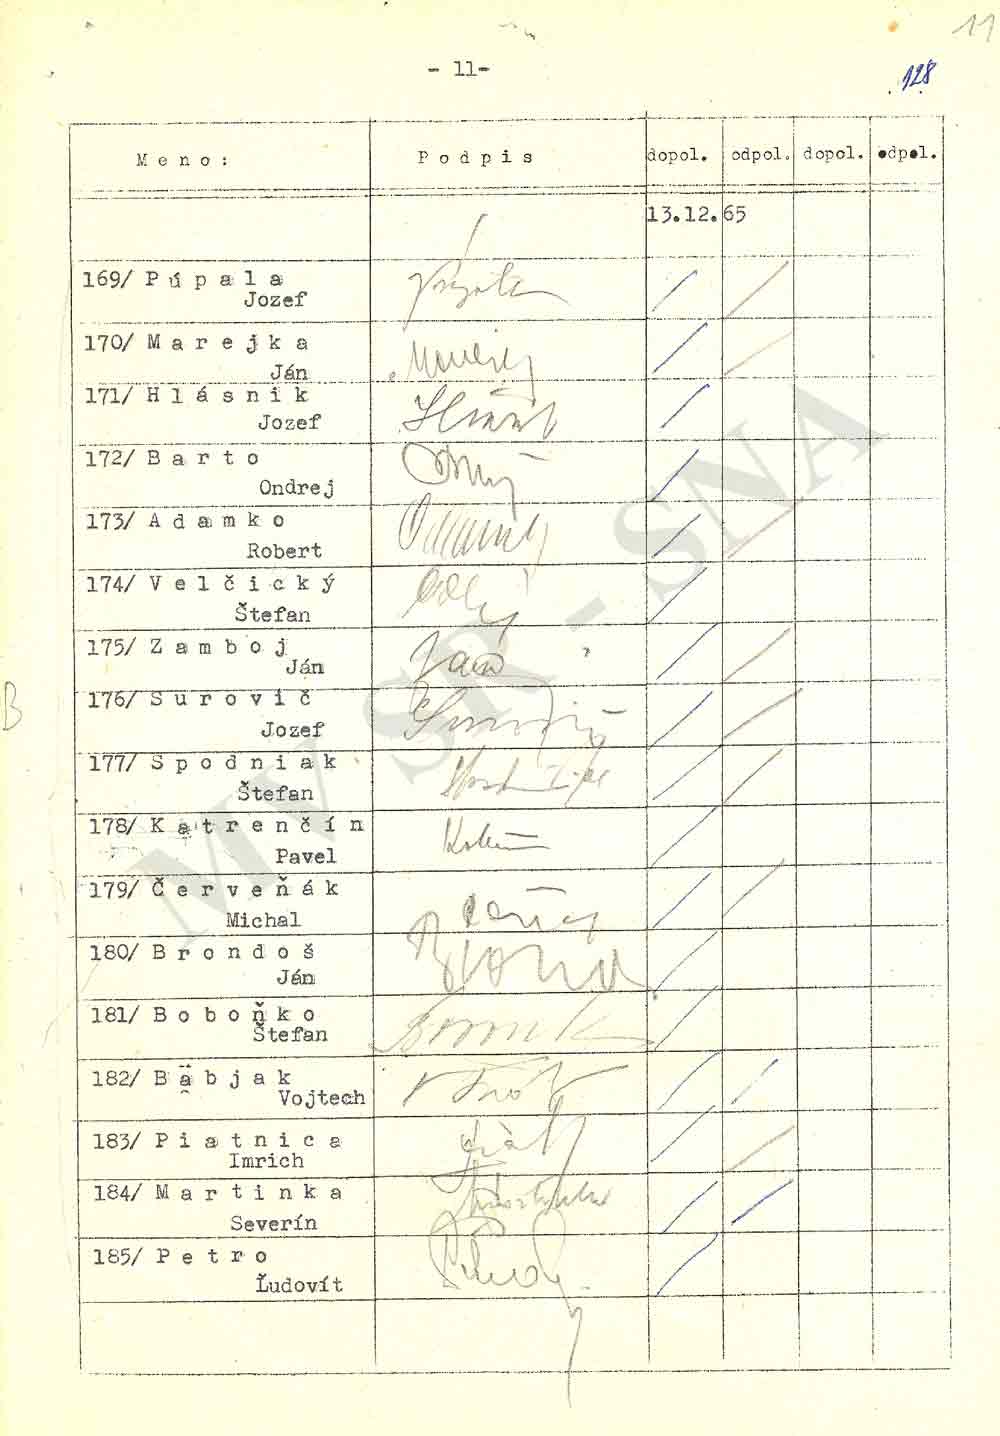 11
- 11-
128
Meno: Podpis dopol. odpol. dopol. odpol.
13.12.65
169/ Púpala
Jozef
170/ Marejka
Ján
171/ Hlásnik
Jozef
172/ Barto
Ondrej
173/ Adamko
Robert
174/ Velčický
Štefan
175/ Zamboj
Ján
176/ Surovič
Jozef
177/ Spodniak
Štefan
178/ Katrenčín
Pavel
179/ Červeňák
Michal
180/ Brondoš
Ján
181/ Boboňko
Štefan
182/ Bäbjak
Vojtech
183/ Piatnica
Imrich
184/ Martinka
Severín
185/ Petro
Ľudovít
B
MV SR - SNA